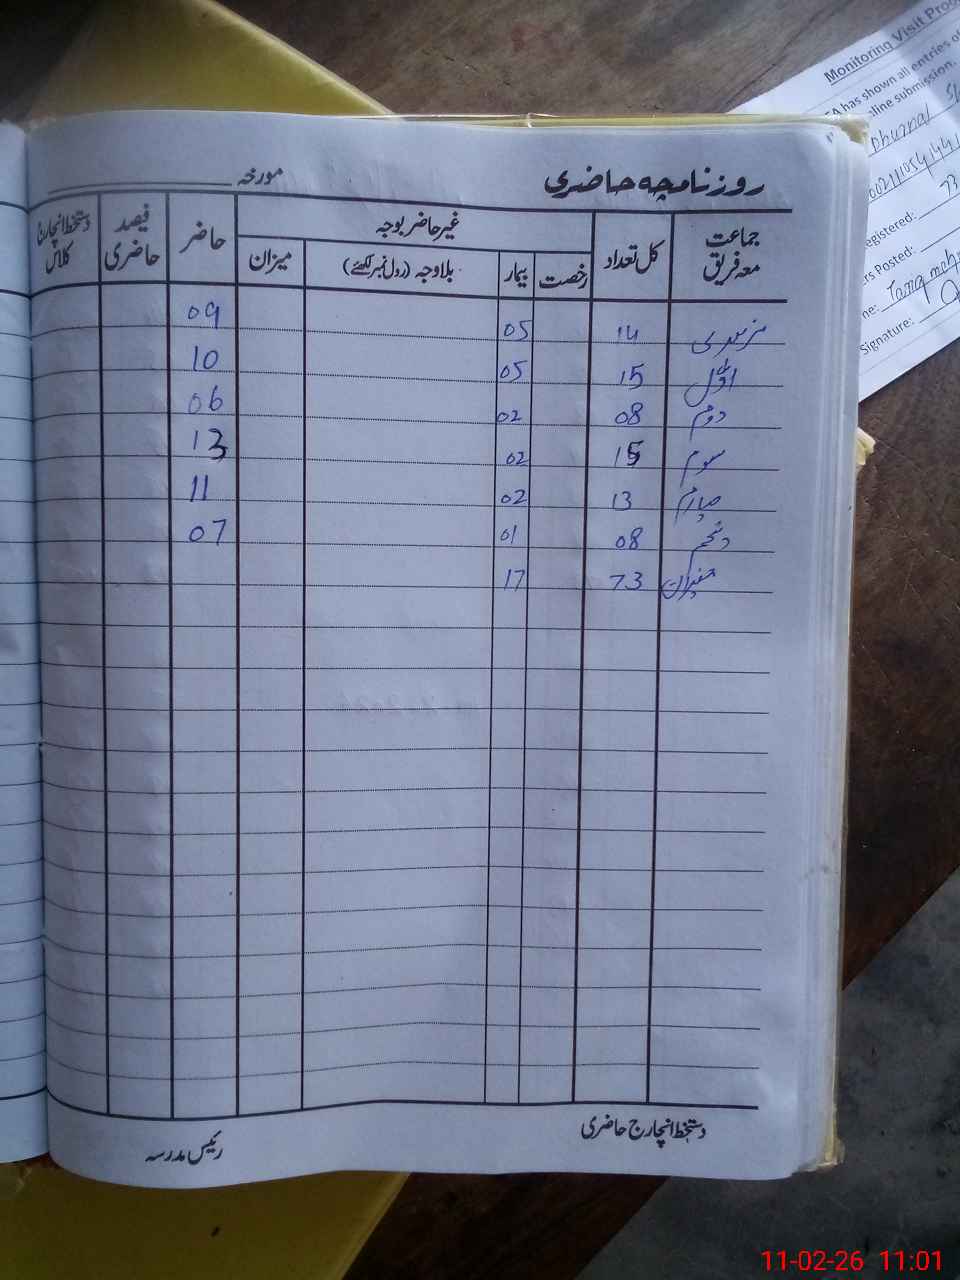 روزنامچہ حاضری مورخہ
جماعت معہ فریق کل تعداد غیر حاضر بوجہ حاضر فیصد حاضری دستخط انچارج کلاس
رخصت بیمار بلاوجہ (رول نمبر لکھئے) میزان
نرسری 14 05 09
اوّل 15 05 10
دوم 08 02 06
سوم 15 02 13
چہارم 13 02 11
پنجم 08 01 07
میزان 73 17
دستخط انچارج حاضری
رئیس مدرسہ
Monitoring Visit
has shown all entries of
line submission.
Dhurnal
egistered: 73
rs Posted:
ne: Tariq
Signature:
11-02-26 11:01